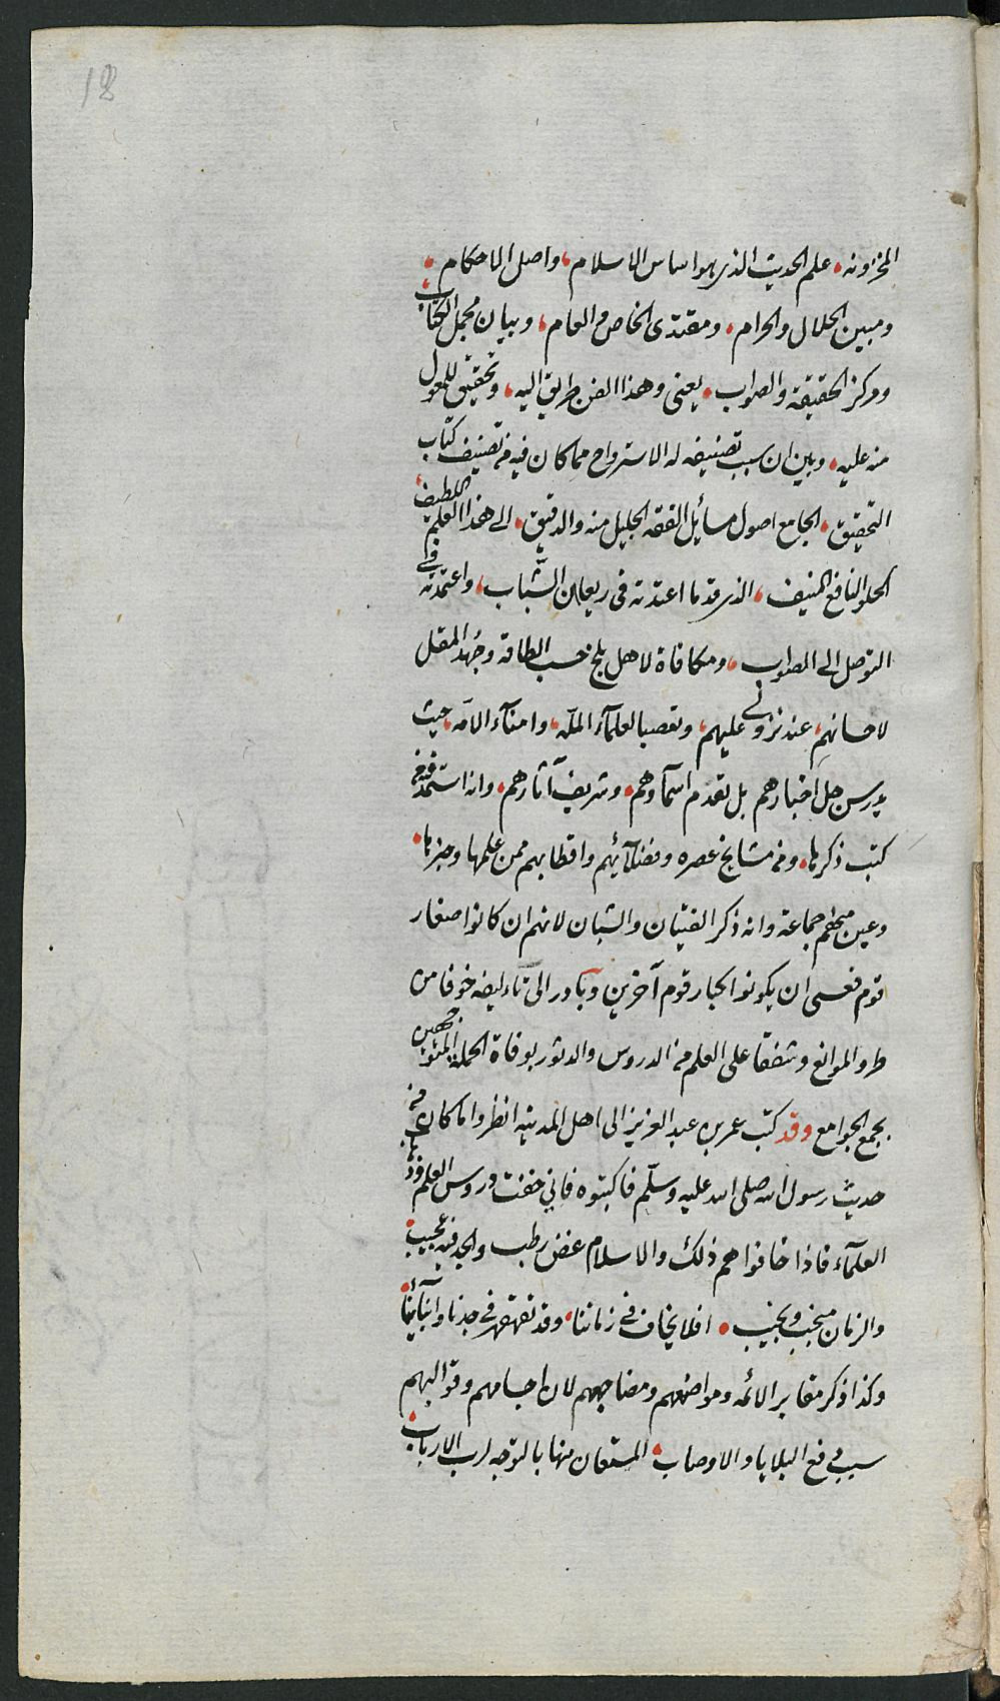 18
المخزونه، علم الحديث الذى هو اساس الاسلام، واصل الاحكام،
ومبين الحلال والحرام، ومقتدى الخاص والعام، وبيان مجمل الكتاب،
ومركز الحقيقة والصواب، يعنى وهذا الفن طريق اليه، وتحقيق للمعول
منه عليه، وبين ان سبب تصنيفه له الاسترواح مما كان فيه من تصنيف كتاب
التحقيق، الجامع اصول مسائل الفقه الجليل منه والدقيق، الى هذا العلم اللطيف،
الحلو النافع المنيف، الذى قدما اعتدته فى ريعان الشباب، واعتمدته فى
التوصل الى الصواب، ومكافاة لاهل بلخ حسب الطاقة وجُهد المقل
لاحسانهم، عند نزولى عليهم، وتعصبا لعلمآء الملّه، وامنآء الامّه، حيث
يدرس جل اخبارهم بل تعدم اسمآوهم، وشريف آثارهم، وانه استمد فيه من
كتب ذكرها، ومن مشايخ عصره وفضلائهم واقطابهم ممن علمها وخبرها،
وعين منهم جماعة وانه ذكر الفتيان والشبان لانهم ان كانوا صغار
قوم فعسى ان يكونوا كبار قوم آخرين وبادر الى تاليفه خوفا من
طرو الموانع وشفقا على العلم من الدروس والدثور بوفاة الحملة المتوجهين
بجمع الجوامع وقد كتب عمر بن عبد العزيز الى اهل المدينه انظروا ما كان من
حديث رسول الله صلى الله عليه وسلّم فاكتبوه فانى خفت دروس العلم وذهاب
العلمآء فاذا خافوا هم ذلك والاسلام غض رطب والجد فيه عجيب،
والزمان منجب ونجيب، افلا يخاف فى زماننا، وقد تقهقر فى جدنا وابنآئنا،
وكذا ذكر مقابر الائمه ومواضعهم ومضاجعهم لان اجسامهم وقوالبهم
سبب دفع البلايا والاوصاب، المستعان منها بالتوجه لرب الارباب،